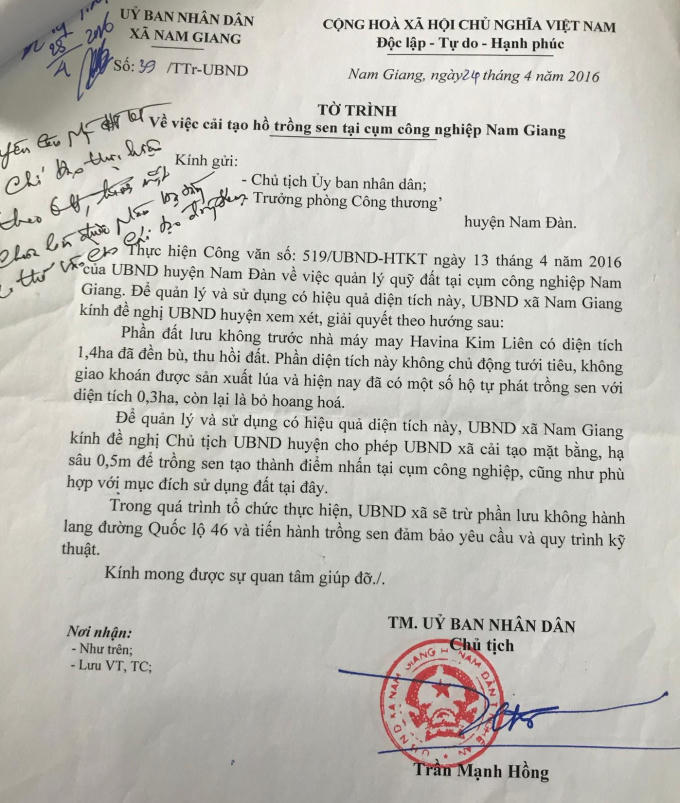 UỶ BAN NHÂN DÂN
XÃ NAM GIANG
Số: 39 /TTr-UBND
CỘNG HOÀ XÃ HỘI CHỦ NGHĨA VIỆT NAM
Độc lập - Tự do - Hạnh phúc
Nam Giang, ngày 24 tháng 4 năm 2016
28
4
2016
TỜ TRÌNH
Về việc cải tạo hồ trồng sen tại cụm công nghiệp Nam Giang
Kính gửi:
- Chủ tịch Ủy ban nhân dân;
- Trưởng phòng Công thương
huyện Nam Đàn.
Thực hiện Công văn số: 519/UBND-HTKT ngày 13 tháng 4 năm 2016
của UBND huyện Nam Đàn về việc quản lý quỹ đất tại cụm công nghiệp Nam
Giang. Để quản lý và sử dụng có hiệu quả diện tích này, UBND xã Nam Giang
kính đề nghị UBND huyện xem xét, giải quyết theo hướng sau:
Phần đất lưu không trước nhà máy may Havina Kim Liên có diện tích
1,4ha đã đền bù, thu hồi đất. Phần diện tích này không chủ động tưới tiêu, không
giao khoán được sản xuất lúa và hiện nay đã có một số hộ tự phát trồng sen với
diện tích 0,3ha, còn lại là bỏ hoang hoá.
Để quản lý và sử dụng có hiệu quả diện tích này, UBND xã Nam Giang
kính đề nghị Chủ tịch UBND huyện cho phép UBND xã cải tạo mặt bằng, hạ
sâu 0,5m để trồng sen tạo thành điểm nhấn tại cụm công nghiệp, cũng như phù
hợp với mục đích sử dụng đất tại đây.
Trong quá trình tổ chức thực hiện, UBND xã sẽ trừ phần lưu không hành
lang đường Quốc lộ 46 và tiến hành trồng sen đảm bảo yêu cầu và quy trình kỹ
thuật.
Kính mong được sự quan tâm giúp đỡ./.
Nơi nhận:
- Như trên;
- Lưu VT, TC;
TM. UỶ BAN NHÂN DÂN
Chủ tịch
UBND XÃ NAM GIANG H NAM ĐÀN
Trần Mạnh Hồng